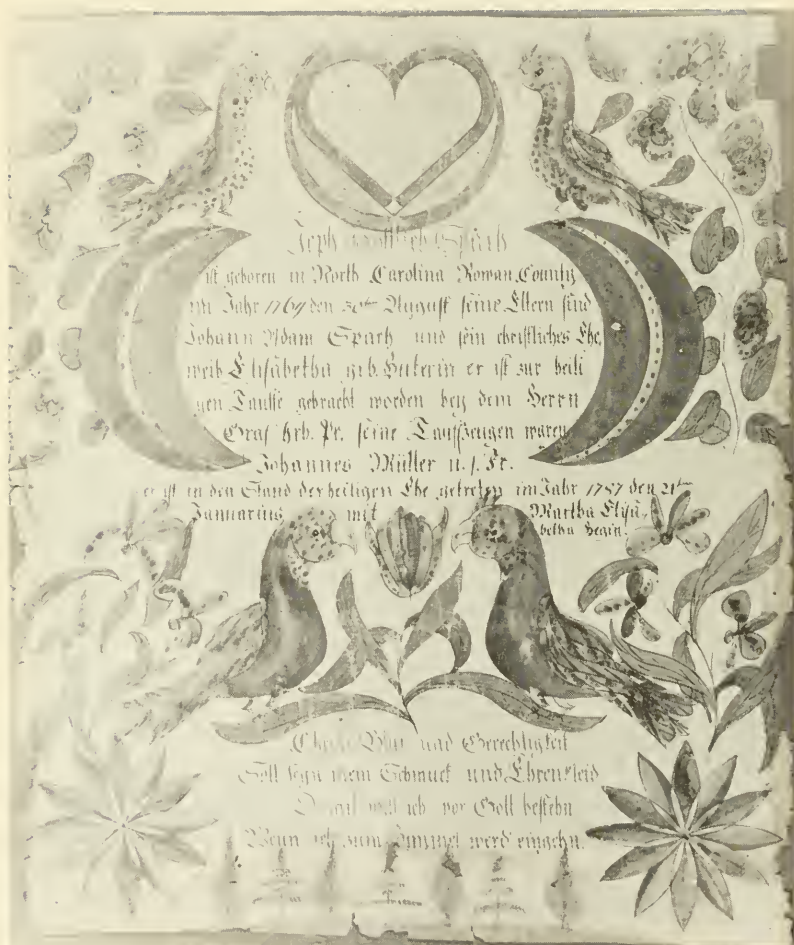 Späth
ist geboren in North Carolina Rowan County
im Jahr 1769 den 30ten August seine Eltern sind
Johann Adam Spach und sein christliches Ehe,
weib Elisabetha geb. Huterin er ist zur heili
gen Tauffe gebracht worden bey dem Herrn
Graf Hrh. Pr. seine Tauffzeugen waren
Johannes Müller u. s. Fr.
er ist in den Stand der heiligen Ehe getreten im Jahr 1787 den 21ten
Jannarius mit Martha Elisa,
betha Hegin.
Christi Blut und Gerechtigkeit
Soll seyn mein Schmuck und Ehrenkleid
Damit will ich vor Gott bestehn
Wenn ich zum Himmel werd eingehn.